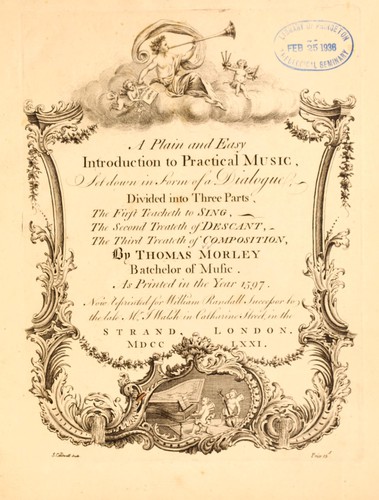 LIBRARY OF PRINCETON
FEB 25 1938
THEOLOGICAL SEMINARY
A Plain and Easy
Introduction to Practical MUSIC,
Set down in Form of a Dialogue
Divided into Three Parts,
The First Teacheth to SING,
The Second Treateth of DESCANT,
The Third Treateth of COMPOSITION,
By THOMAS MORLEY
Batchelor of Music.
As Printed in the Year 1597.
Now Reprinted for William Randall, Successor to
the late Mr. J. Walsh in Catharine Street, in the
STRAND, LONDON,
MDCC LXXI.
Price